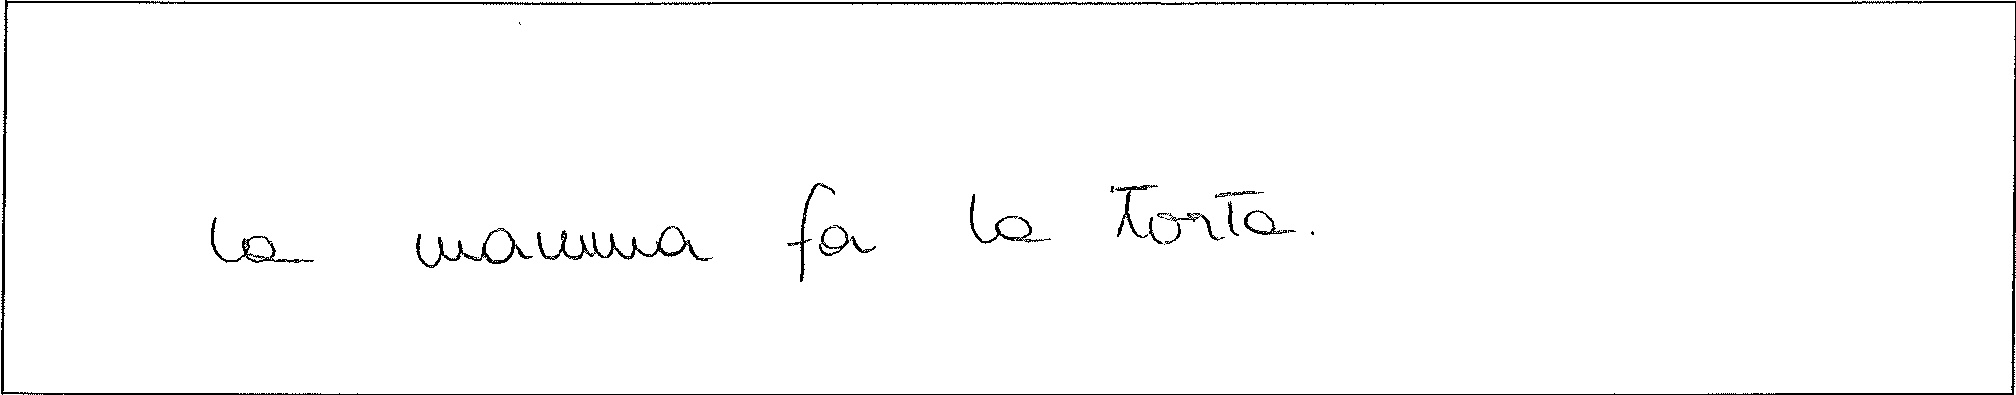 la mamma fa la torta.